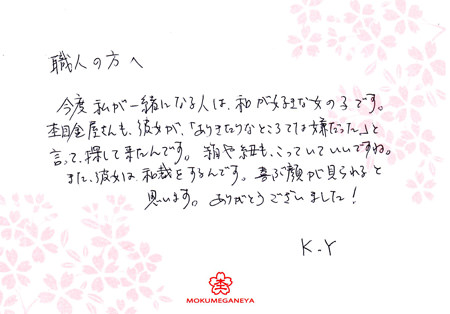 職人の方へ
今度私が一緒になる人は、和が好きな女の子です。
杢目金屋さんも、彼女が、「ありきたりなところでは嫌だった。」と
言って、探して来たんです。箱や紐も、こっていていいですね。
また、彼女は、和裁をするんです。喜ぶ顔が見られると
思います。ありがとうございました！
K.Y
杢
MOKUMEGANEYA